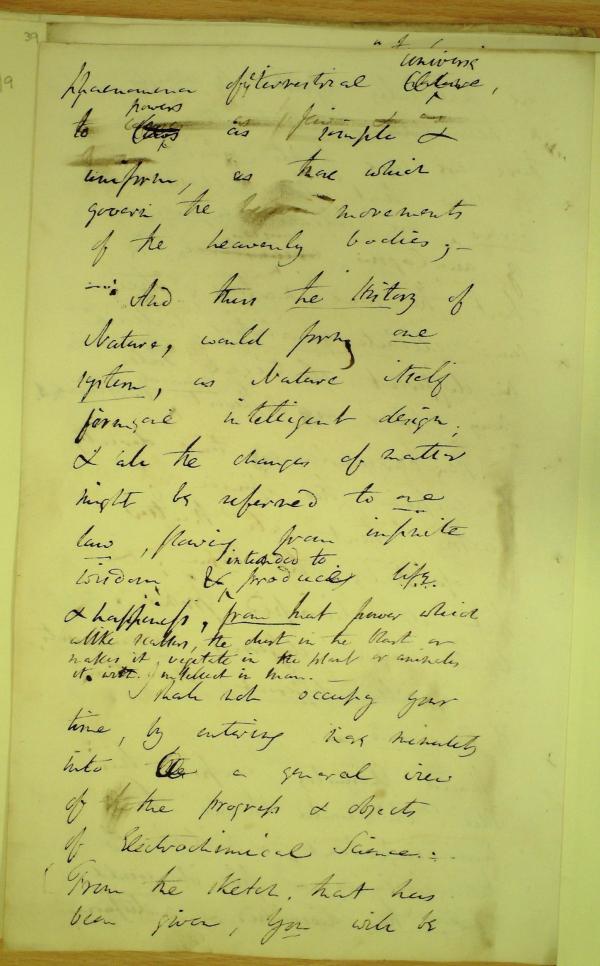 39
9
universe
Phaenomena of terrestrial
powers
to as simple &
uniform, as those which
govern the movements
of the heavenly bodies; –
And thus the History of
Nature, would form one
system, as Nature itself
forms one intelligent design;
& all the changes of matter
might be referred to one
law, flowing from infinite
intended to
wisdom & produce life
& happiness, from that power which
alike scatters, the dust in the blast or
makes it, vegetate in the plant or animates
it with intellect in man. –
I shall not occupy your
time, by entering more minutely
into a general view
of the progress & objects
of Electrochimical Science. –
From the sketch, that has
been given, you will be